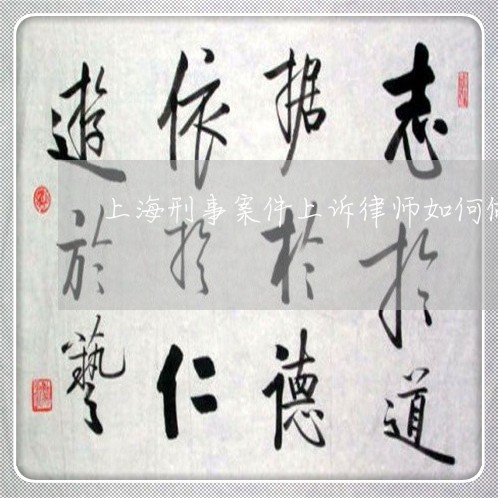 志於道
据於德
依於仁
遊於藝
上海刑事案件上诉律师如何